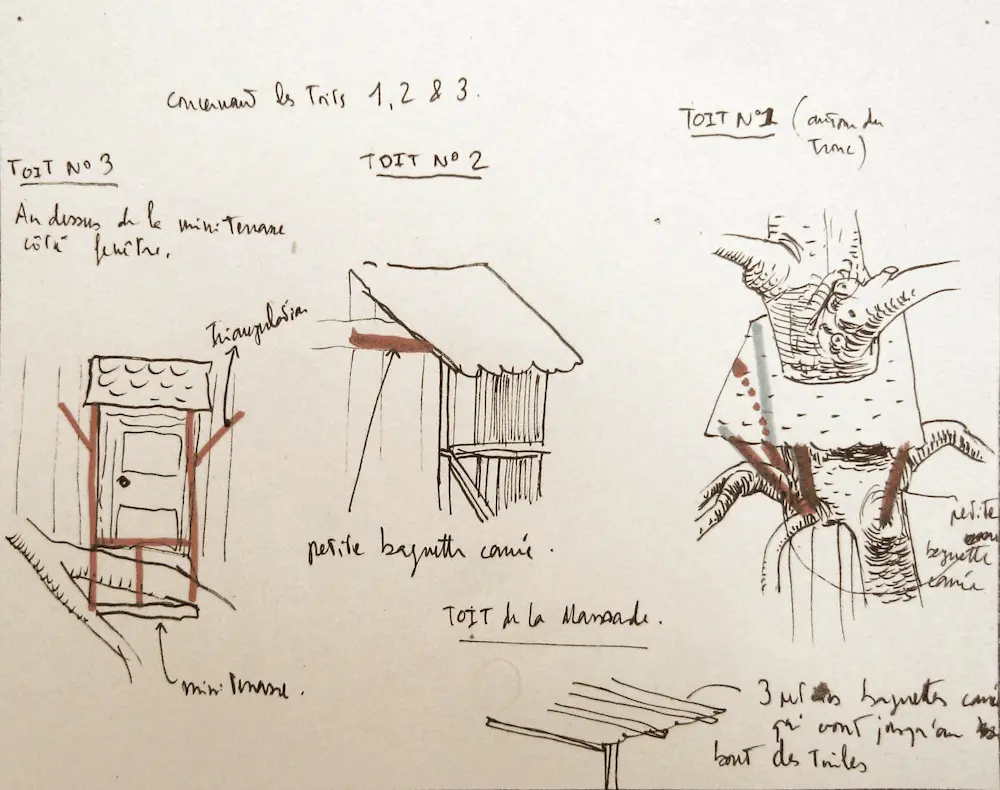 concernant les Toits 1, 2 & 3.
TOIT N°1 (autour du
Tronc)
TOIT N° 2
TOIT N° 3
Au dessus de la mini Terrasse
côté fenêtre.
Triangulation
petite baguette carrée.
petite
baguette
carrée
TOIT de la Mansarde.
mini Terrasse.
3 petites baguettes carré
qui vont jusqu'au
bout des Tuiles